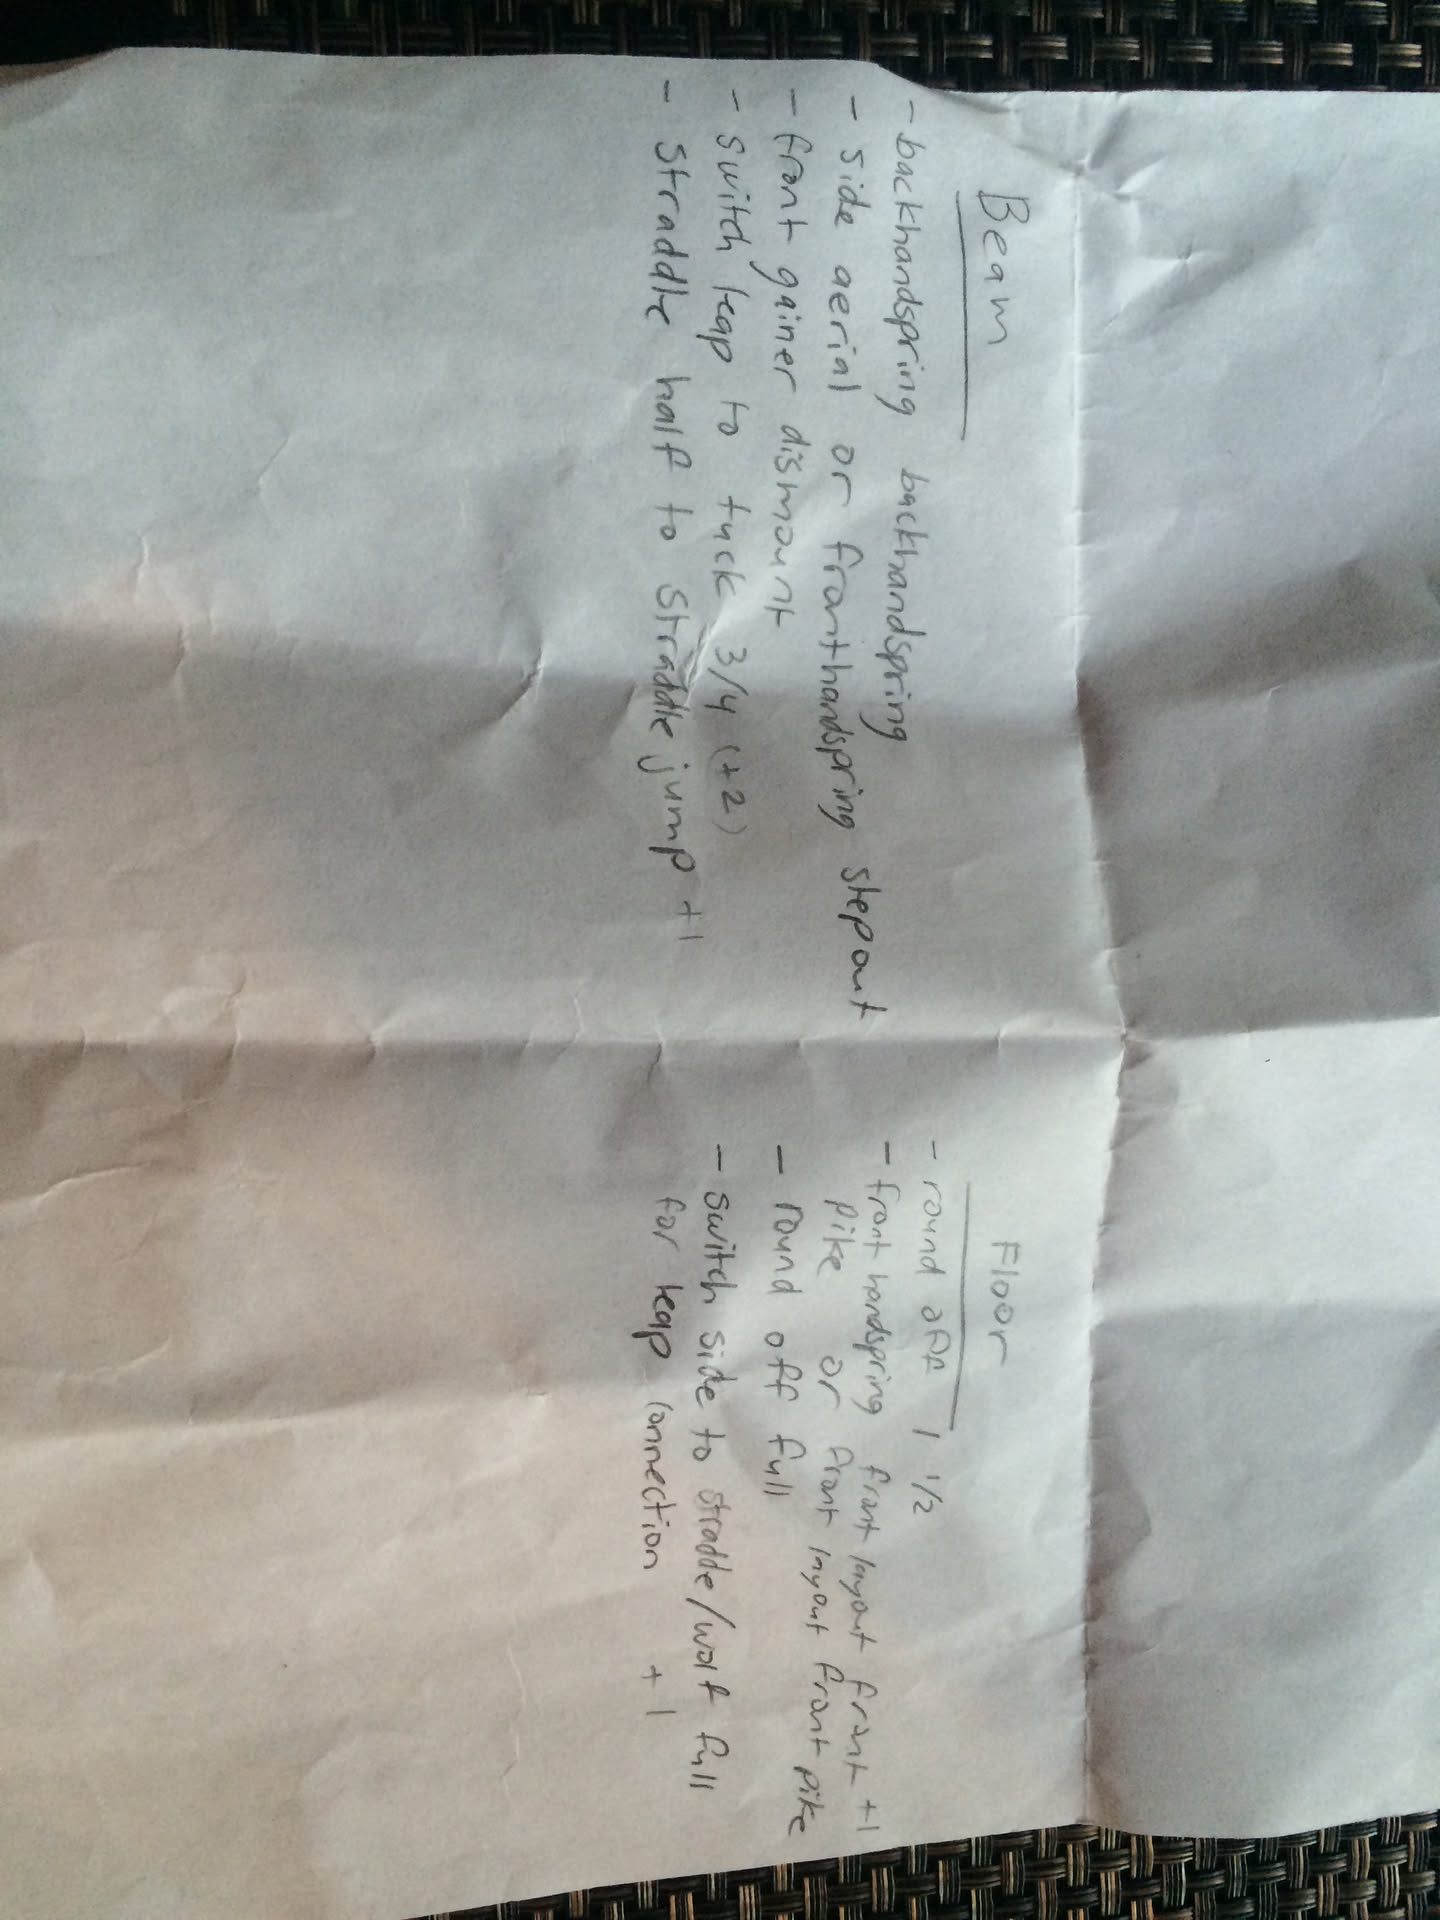 Beam
- backhandspring backhandspring
- side aerial or fronthandspring stepout
- front gainer dismount
- switch leap to tuck 3/4 (+2)
- straddle half to straddle jump +1
Floor
- round off 1 1/2
- front handspring front layout front +1
pike or front layout front pike
- round off full
- switch side to stradde/wolf full
for leap connection +1